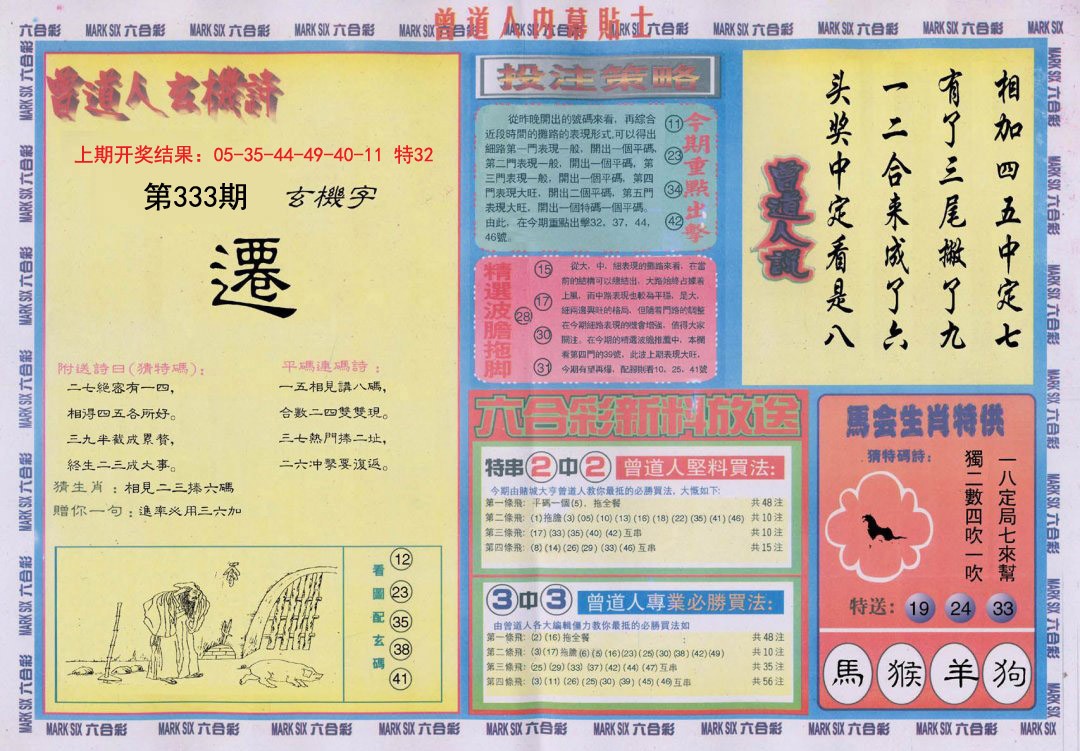 曾道人内幕貼士
MARK SIX 六合彩
曾道人玄機詩
上期开奖结果：05-35-44-49-40-11 特32
第333期 玄機字
遷
附送詩曰(猜特碼)：
二七絕密有一四，
相得四五各所好。
三九半截成累贅，
終生二三成大事。
平碼連碼詩：
一五相見講八碼，
合數二四雙雙現。
三七熱門捧二址，
二六冲擊要復返。
猜生肖：相見二三捧六碼
贈你一句：進率必用三六加
看圖配玄碼
12
23
35
38
41
投注策略
從昨晚開出的號碼來看，再綜合
近段時間的攤路的表現形式,可以得出
細路第一門表現一般，開出一個平碼，
第二門表現一般，開出一個平碼，第
三門表現一般，開出一個平碼，第四
門表現大旺，開出二個平碼，第五門
表現大旺，開出一個特碼一個平碼。
由此，在今期重點出擊32，37，44，
46號。
11
23
34
42
今期重點出擊
精選波膽拖脚
15
17
28
30
31
從大、中、細表現的攤路來看，在當
前的結構可以總結出，大路始終占據着
上風，而中路表現也較為平穩，是大、
細兩邊興旺的格局，但隨着門路的調整
在今期細路表現的機會增強，值得大家
關注，在今期的精選波膽推薦中，本欄
看第四門的39號，此波上期表現大旺，
今期有望再爆，配脚則看10、25、41號
曾道人說
相加四五中定七
有了三尾撇了九
一二合来成了六
头奖中定看是八
六合彩新料放送
特串2中2 曾道人堅料買法：
今期由賭城大亨曾道人教你最抵的必勝買法，大慨如下：
第一條飛：平碼一個(5)，拖全餐 共48注
第二條飛：(1)拖膽(3)(05)(10)(13)(16)(18)(22)(35)(41)(46) 共10注
第三條飛：(17)(33)(35)(40)(42)互串 共10注
第四條飛：(8)(14)(26)(29)(33)(46)互串 共15注
3中3 曾道人專業必勝買法：
由曾道人各大編輯僵力教你最抵的必勝買法如
第一條飛：(2)(16)拖全餐 共48注
第二條飛：(3)(17)拖膽(6)(5)(16)(23)(25)(30)(38)(42)(49) 共10注
第三條飛：(25)(29)(33)(37)(42)(44)(47)互串 共35注
第四條飛：(3)(11)(26)(25)(30)(39)(45)(46)互串 共56注
馬会生肖特供
猜特碼詩：
一八定局七來幫
獨二數四吹一吹
特送：19 24 33
馬 猴 羊 狗